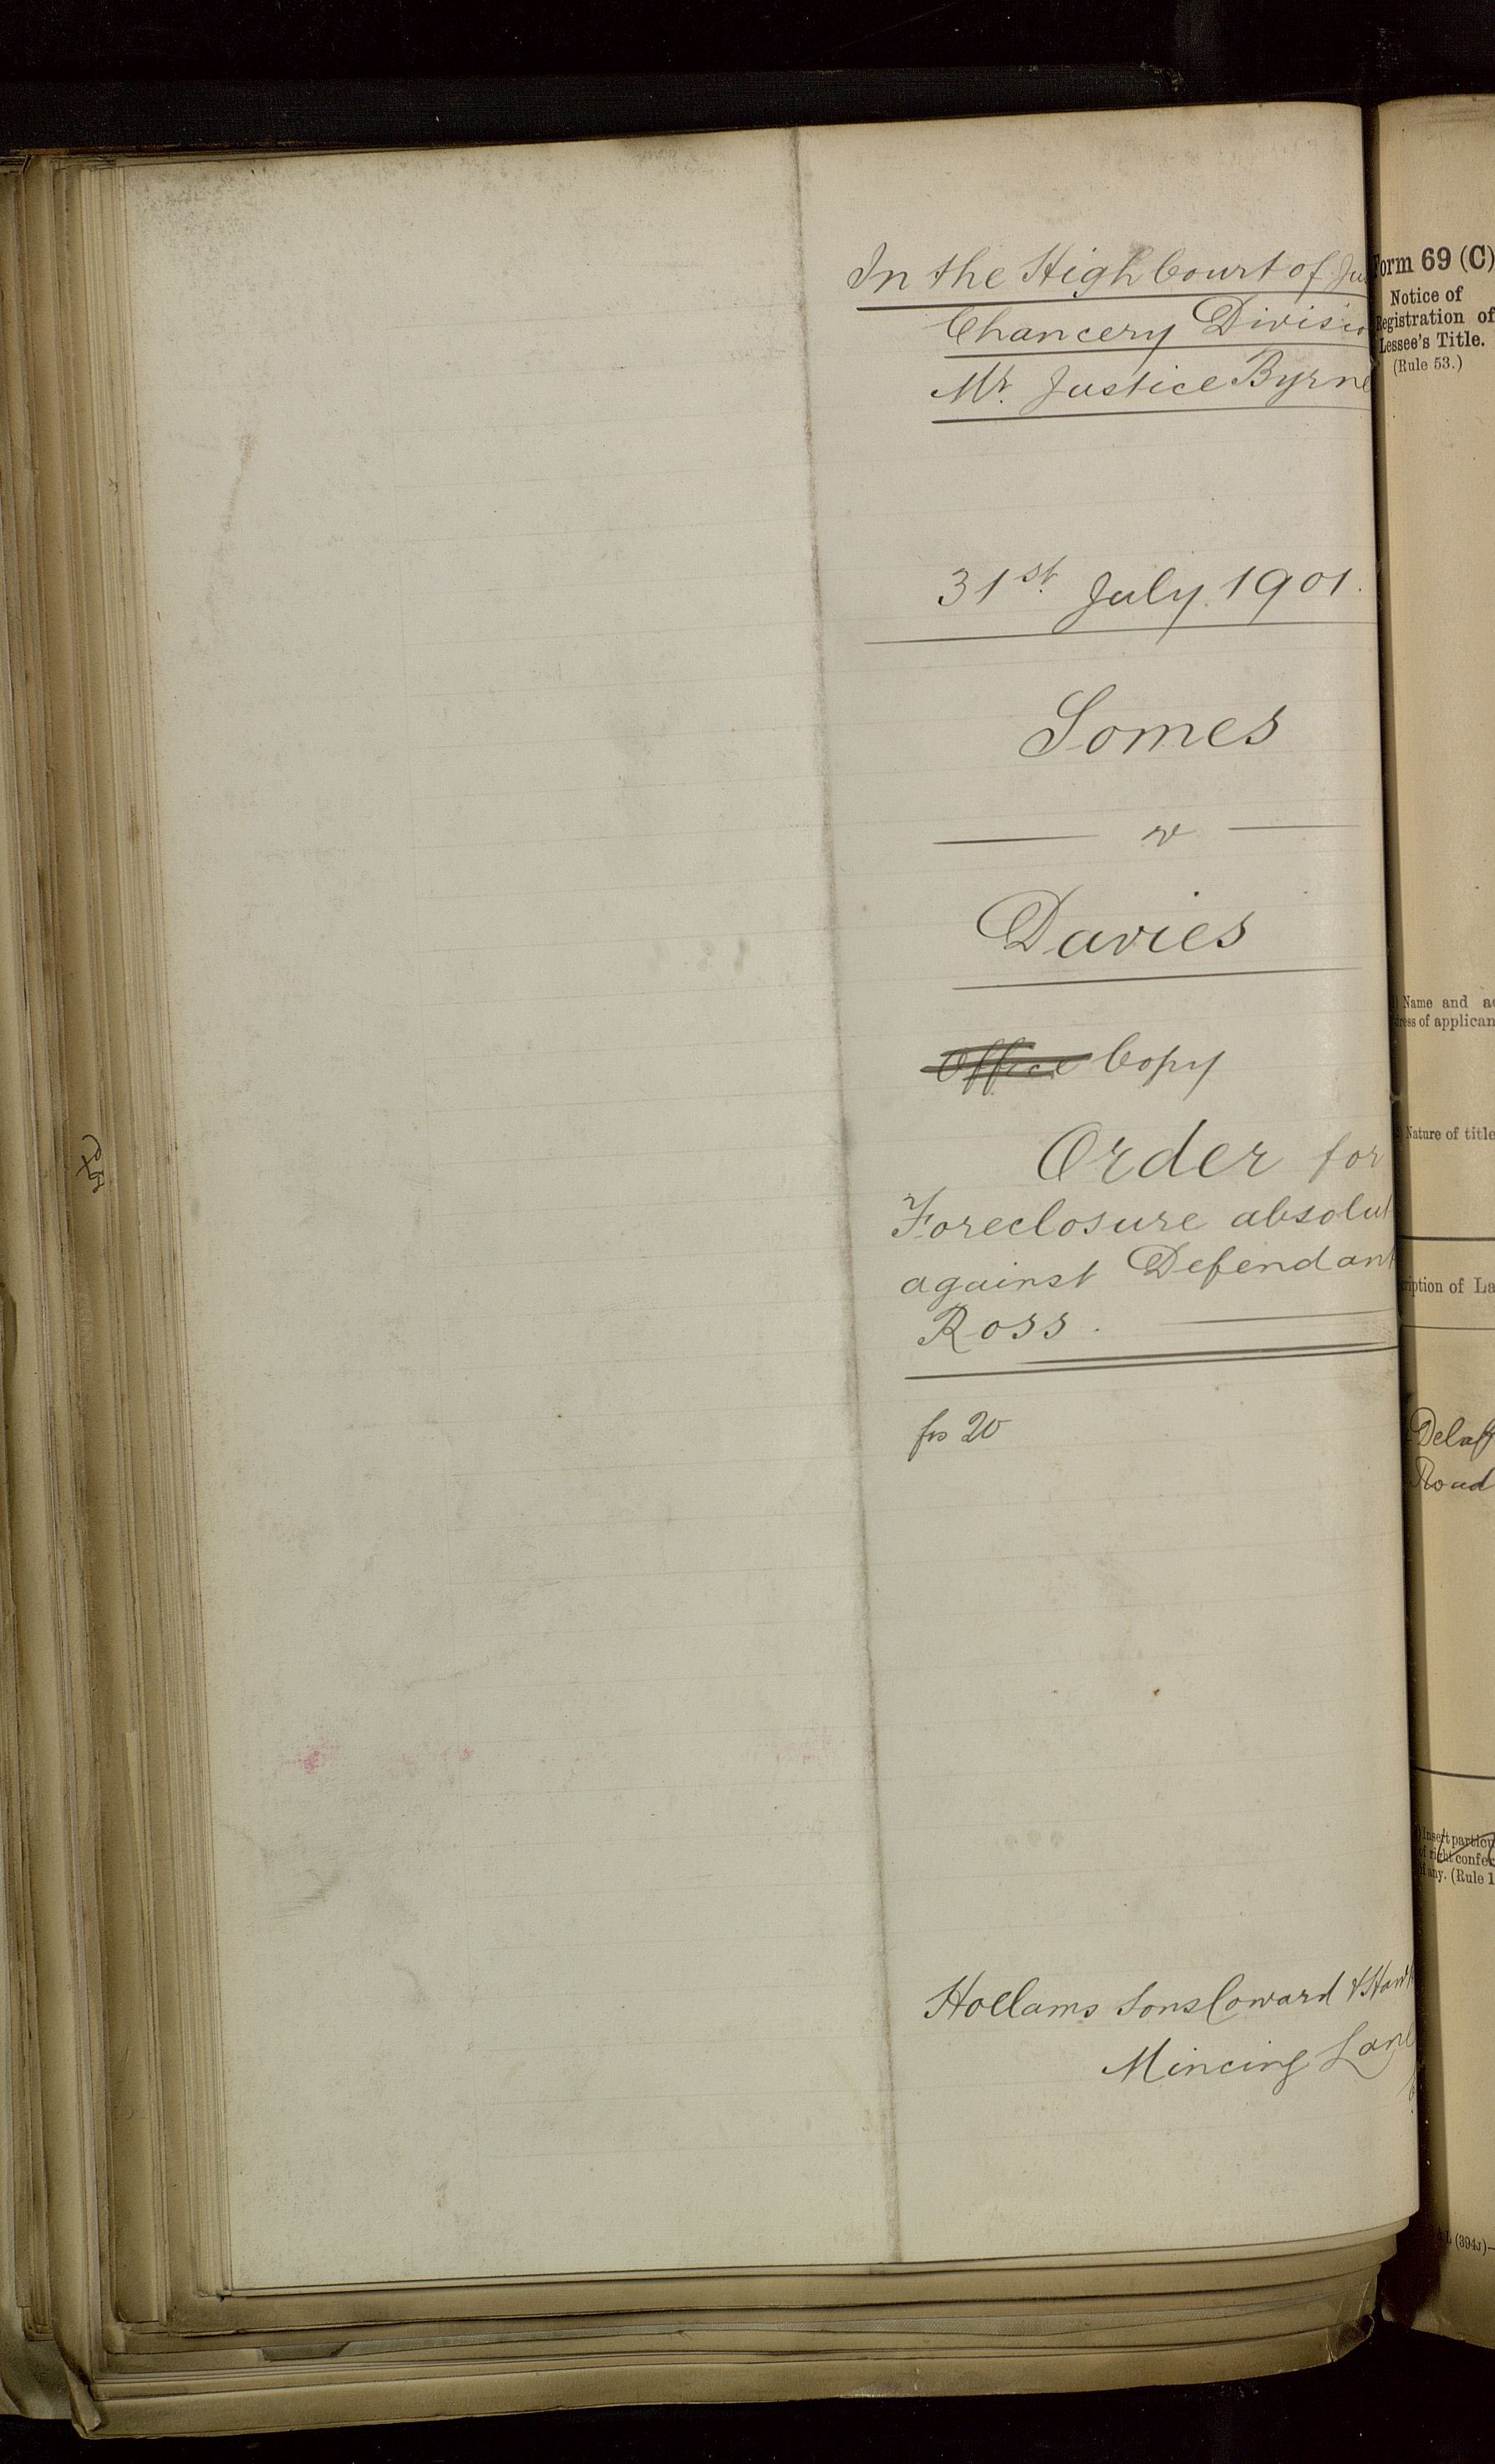 In the High Court of Ju
Chancery Divisio
Mr. Justice Byrne
31st July 1901.
Somes
v
Davies
Office Copy
Order for
Foreclosure absolut
against Defendant
Ross.
fos 20
Hollams Sons Coward &
Mincing Lane
Form 69 (C)
Notice of
Registration of
Lessee's Title.
(Rule 53.)
Name and ad
dress of applican
Nature of title
ription of La
Delaf
Road
Insert particu
of right confer
if any. (Rule 1
(394J)—